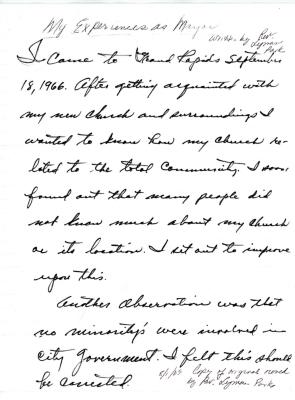 My Experiences as Mayor
Written by Rev. Lyman Parks
I came to Grand Rapids September
18, 1966. After getting acquanted with
my new church and surroundings I
wanted to know how my church re-
lated to the total Community. I soon
found out that many people did
not know much about my church
or its location. I set out to improve
upon this.
Another observation was that
no minority's were involved in
city Government. I felt this should
be corrected.
Copy of original
by Rev. Lyman Parks